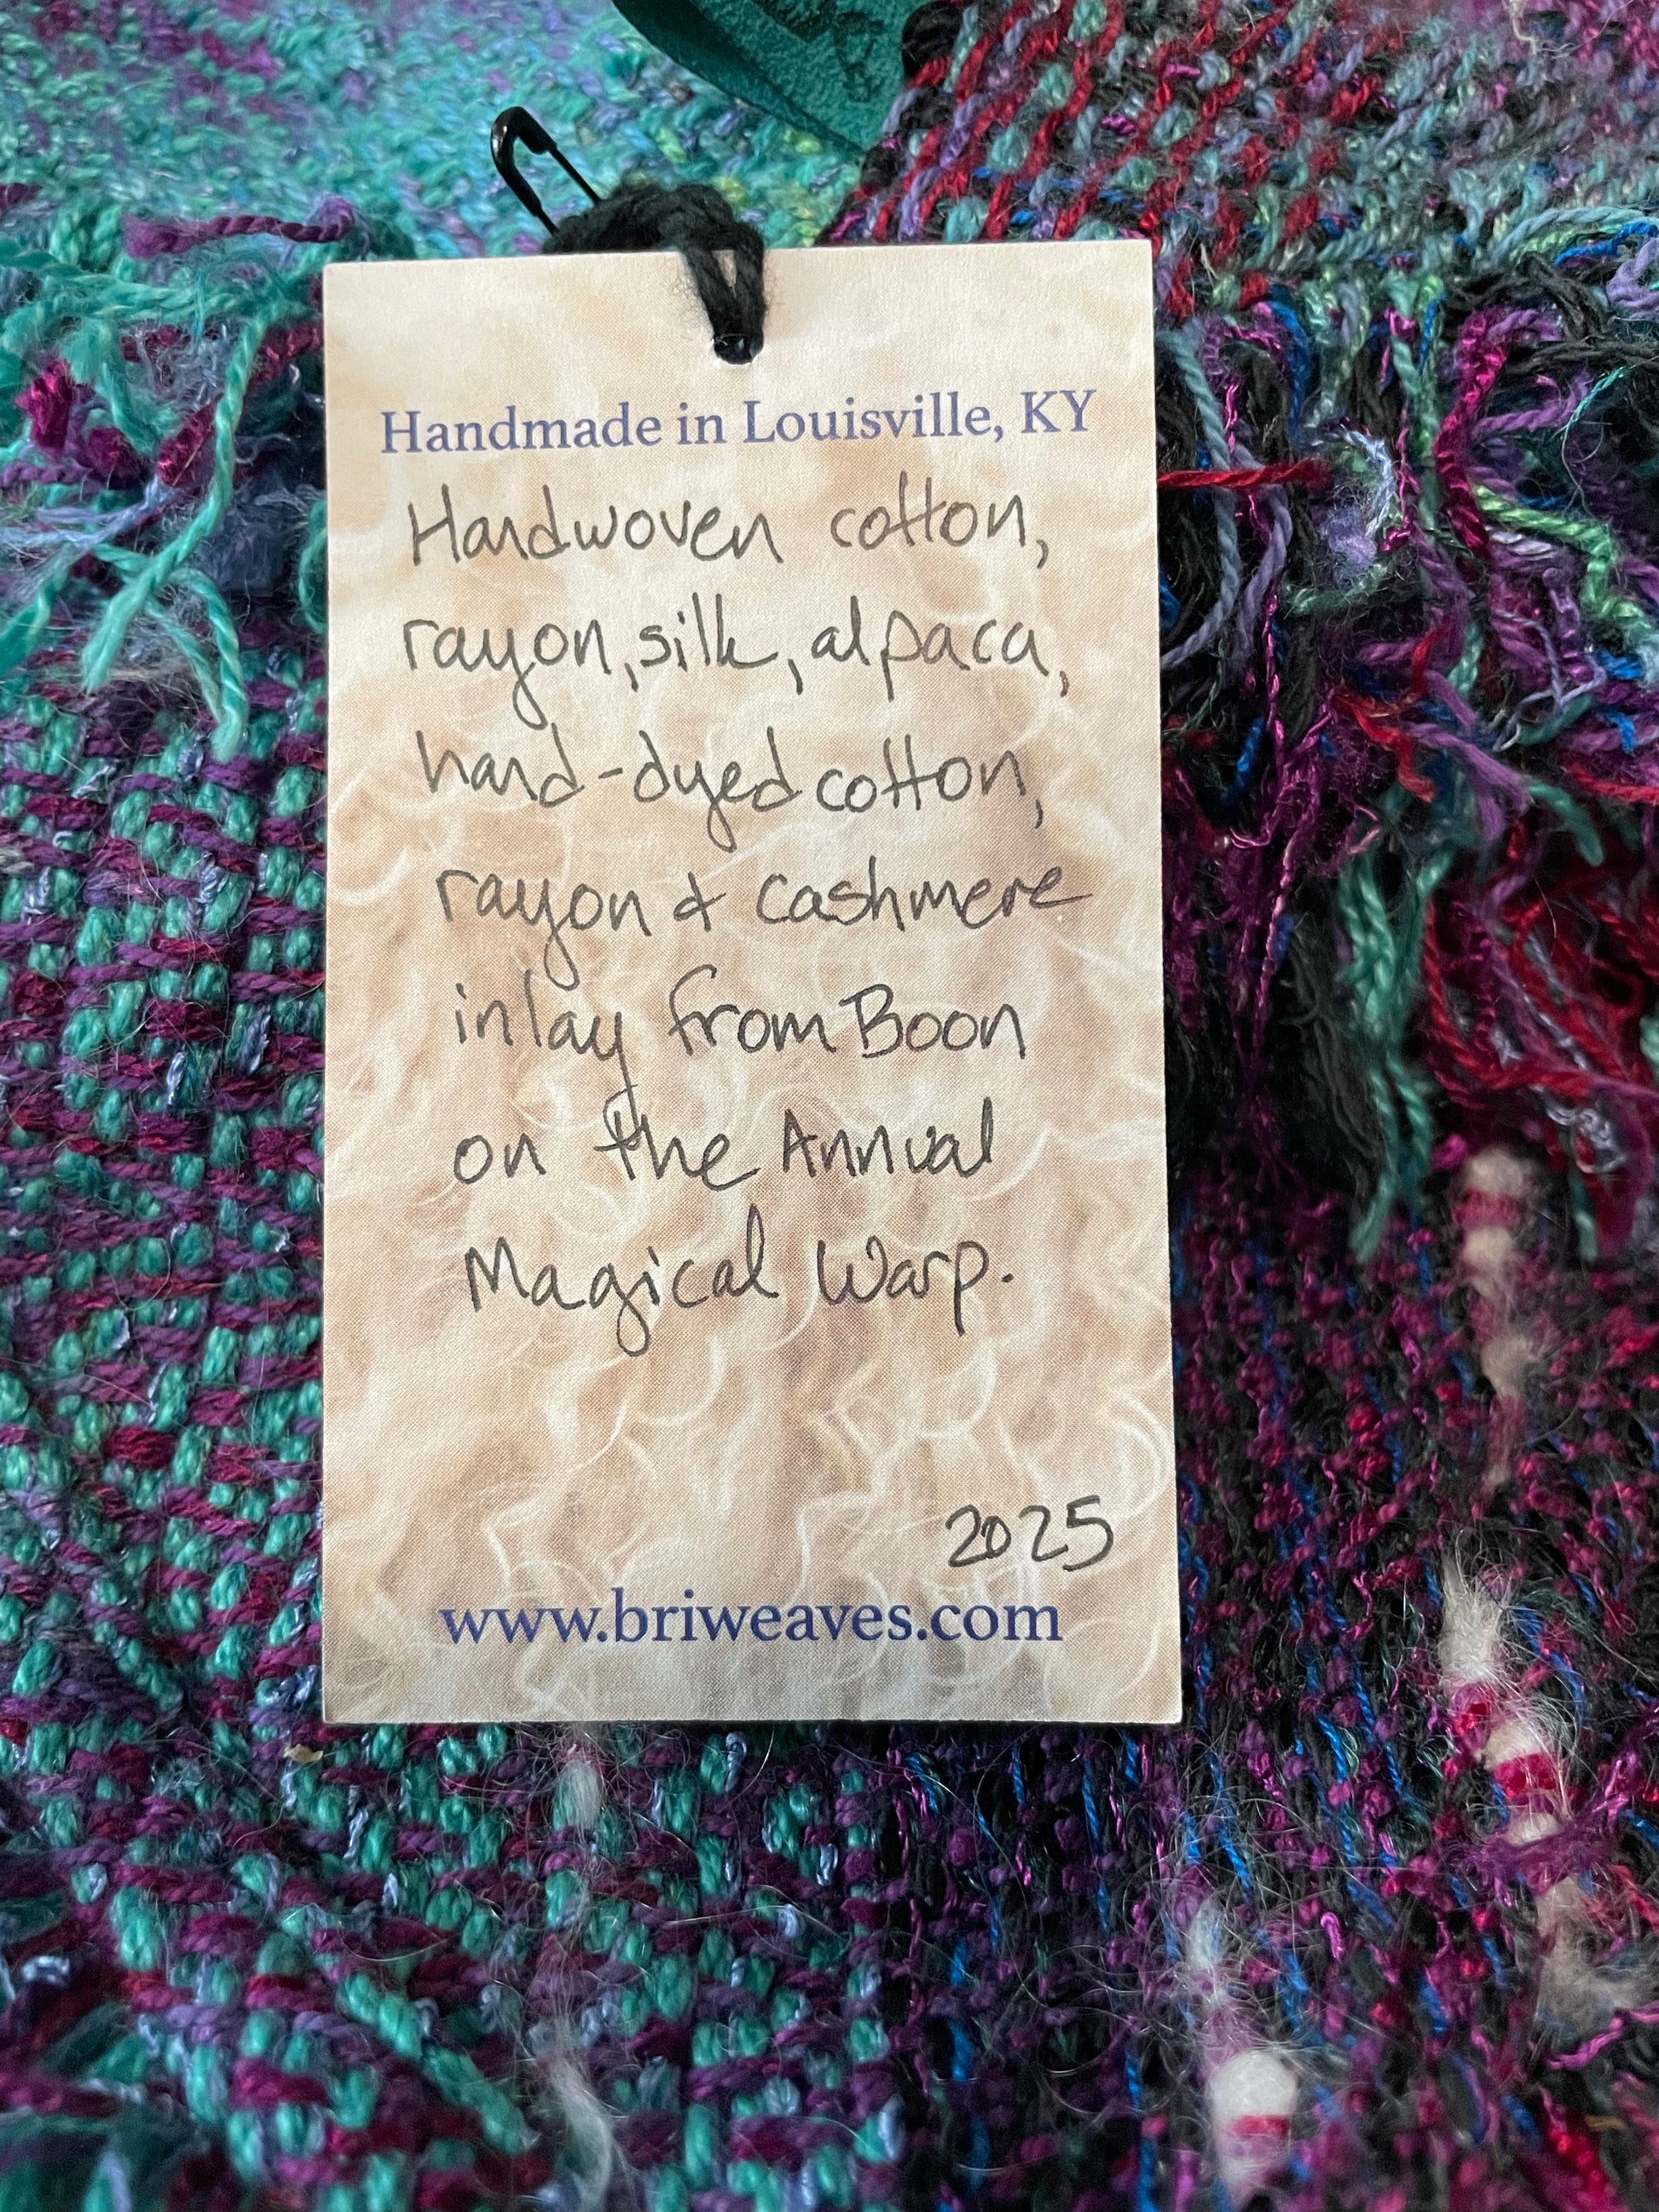 Handmade in Louisville, KY
Handwoven cotton,
rayon, silk, alpaca,
hand-dyed cotton,
rayon & cashmere
inlay from Boon
on the Annual
Magical Warp.
2025
www.briweaves.com